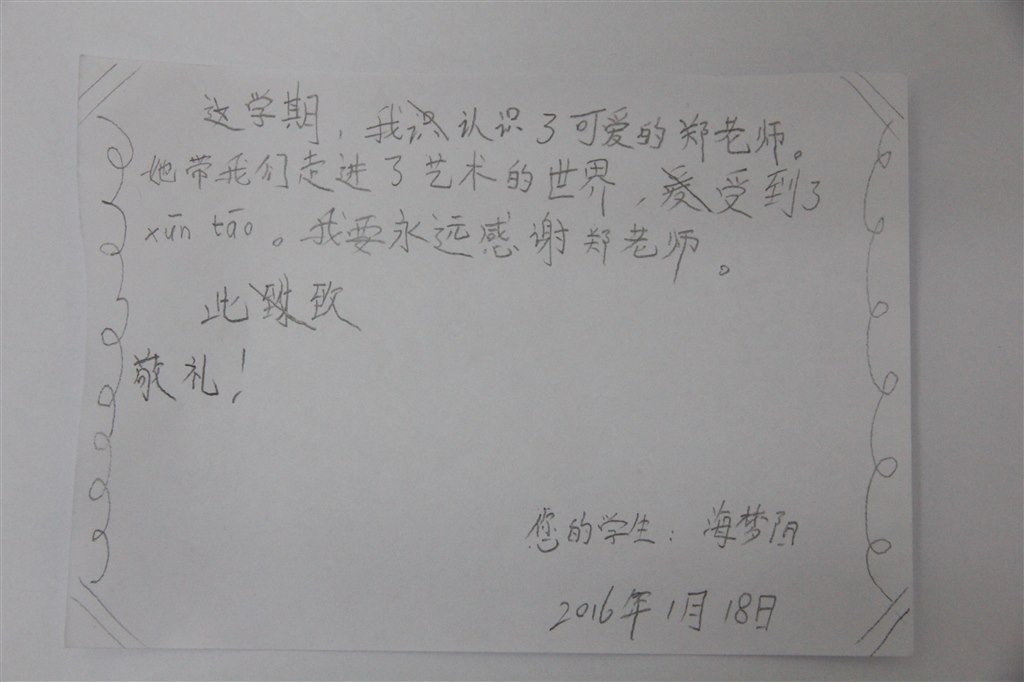 这学期，我认识了可爱的郑老师。
她带我们走进了艺术的世界，受到了
xūn tāo。我要永远感谢郑老师。
此致
敬礼！
您的学生：海梦阴
2016年1月18日